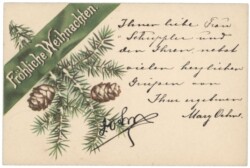 Fröhliche Weihnachten
Ihrer liebe Frau
Schüppler und
den Ihren, nebst
vielen herzlichen
Grüssen von
Ihrem
Mary